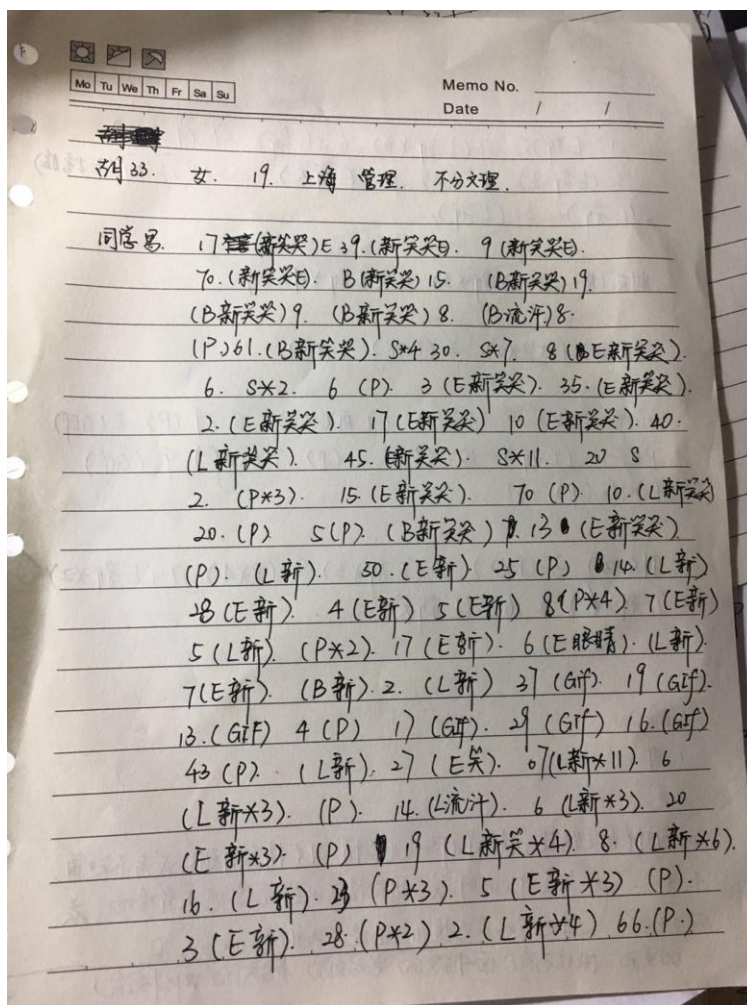 Mo Tu We Th Fr Sa Su
Memo No.
Date / /
胡33. 女. 19. 上海 管理. 不分文理.
同学男. 17 (新笑哭)E 39.(新笑哭E). 9 (新笑哭E).
70.(新笑哭E). B(新笑哭) 15. (B新笑哭) 19.
(B新笑哭) 9. (B新笑哭) 8. (B流汗) 8.
(P) 61.(B新笑哭). S*4 30. S*7. 8 (E新笑哭).
6. S*2. 6 (P). 3 (E新笑哭). 35.(E新笑哭).
2.(E新笑哭). 17 (E新笑哭) 10 (E新笑哭). 40.
(L新笑哭). 45. (新笑哭). S*11. 20 S
2. (P*3). 15.(E新笑哭). 70 (P). 10.(L新笑哭)
20.(P) 5(P). (B新笑哭) 13 (E新笑哭).
(P). (L新). 50.(E新) 25 (P) 14.(L新)
28 (E新). 4 (E新) 5 (E新) 8 (P*4). 7 (E新)
5 (L新). (P*2). 17 (E新). 6 (E眼睛). (L新).
7(E新). (B新). 2. (L新) 37 (Gif). 19 (GIF).
13.(GIF) 4 (P) 17 (Gif). 29 (Gif) 16.(Gif)
43 (P). (L新). 27 (E笑). 67(L新*11). 6
(L新*3). (P). 14.(L流汗). 6 (L新*3). 20
(E新*3). (P) 19 (L新笑*4). 8. (L新*6).
16. (L新). 23 (P*3). 5 (E新*3) (P).
3 (E新). 28.(P*2). 2.(L新*4). 66.(P.)